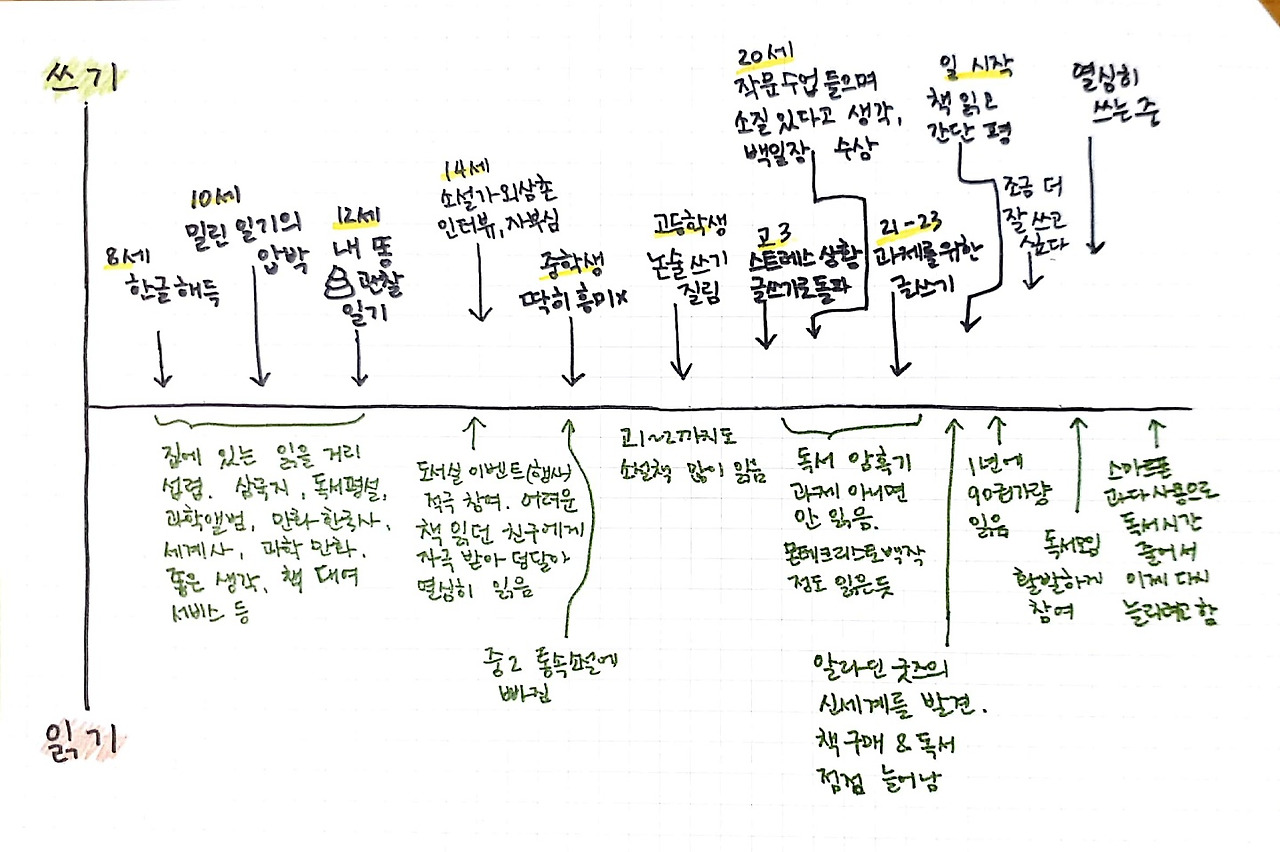 쓰기
8세
한글 해득
10세
밀린 일기의
압박
12세
내 똥
관찰
일기
14세
소설가 외삼촌
인터뷰, 자부심
중학생
딱히 흥미x
고등학생
논술 쓰기
질림
고3
스트레스 상황
글쓰기로 돌파
20세
작문수업 들으며
소질 있다고 생각,
백일장 수상
21-23
과제를 위한
글쓰기
일 시작
책 읽고
간단 평
조금 더
잘 쓰고
싶다
열심히
쓰는 중
집에 있는 읽을 거리
섭렵. 삼국지, 독서평설,
과학앨범, 만화 한국사,
세계사, 과학 만화.
좋은 생각, 책 대여
서비스 등
도서실 이벤트(행사)
적극 참여. 어려운
책 읽던 친구에게
자극 받아 덩달아
열심히 읽음
중2 통속소설에
빠짐
고1~2까지도
소설책 많이 읽음
독서 암흑기
과제 아니면
안 읽음.
몬테크리스토백작
정도 읽은듯
알라딘 굿즈의
신세계를 발견.
책 구매 & 독서
점점 늘어남
1년에
90권가량
읽음
독서모임
활발하게
참여
스마트폰
과다 사용으로
독서시간
줄어서
이제 다시
늘리려고 함
읽기